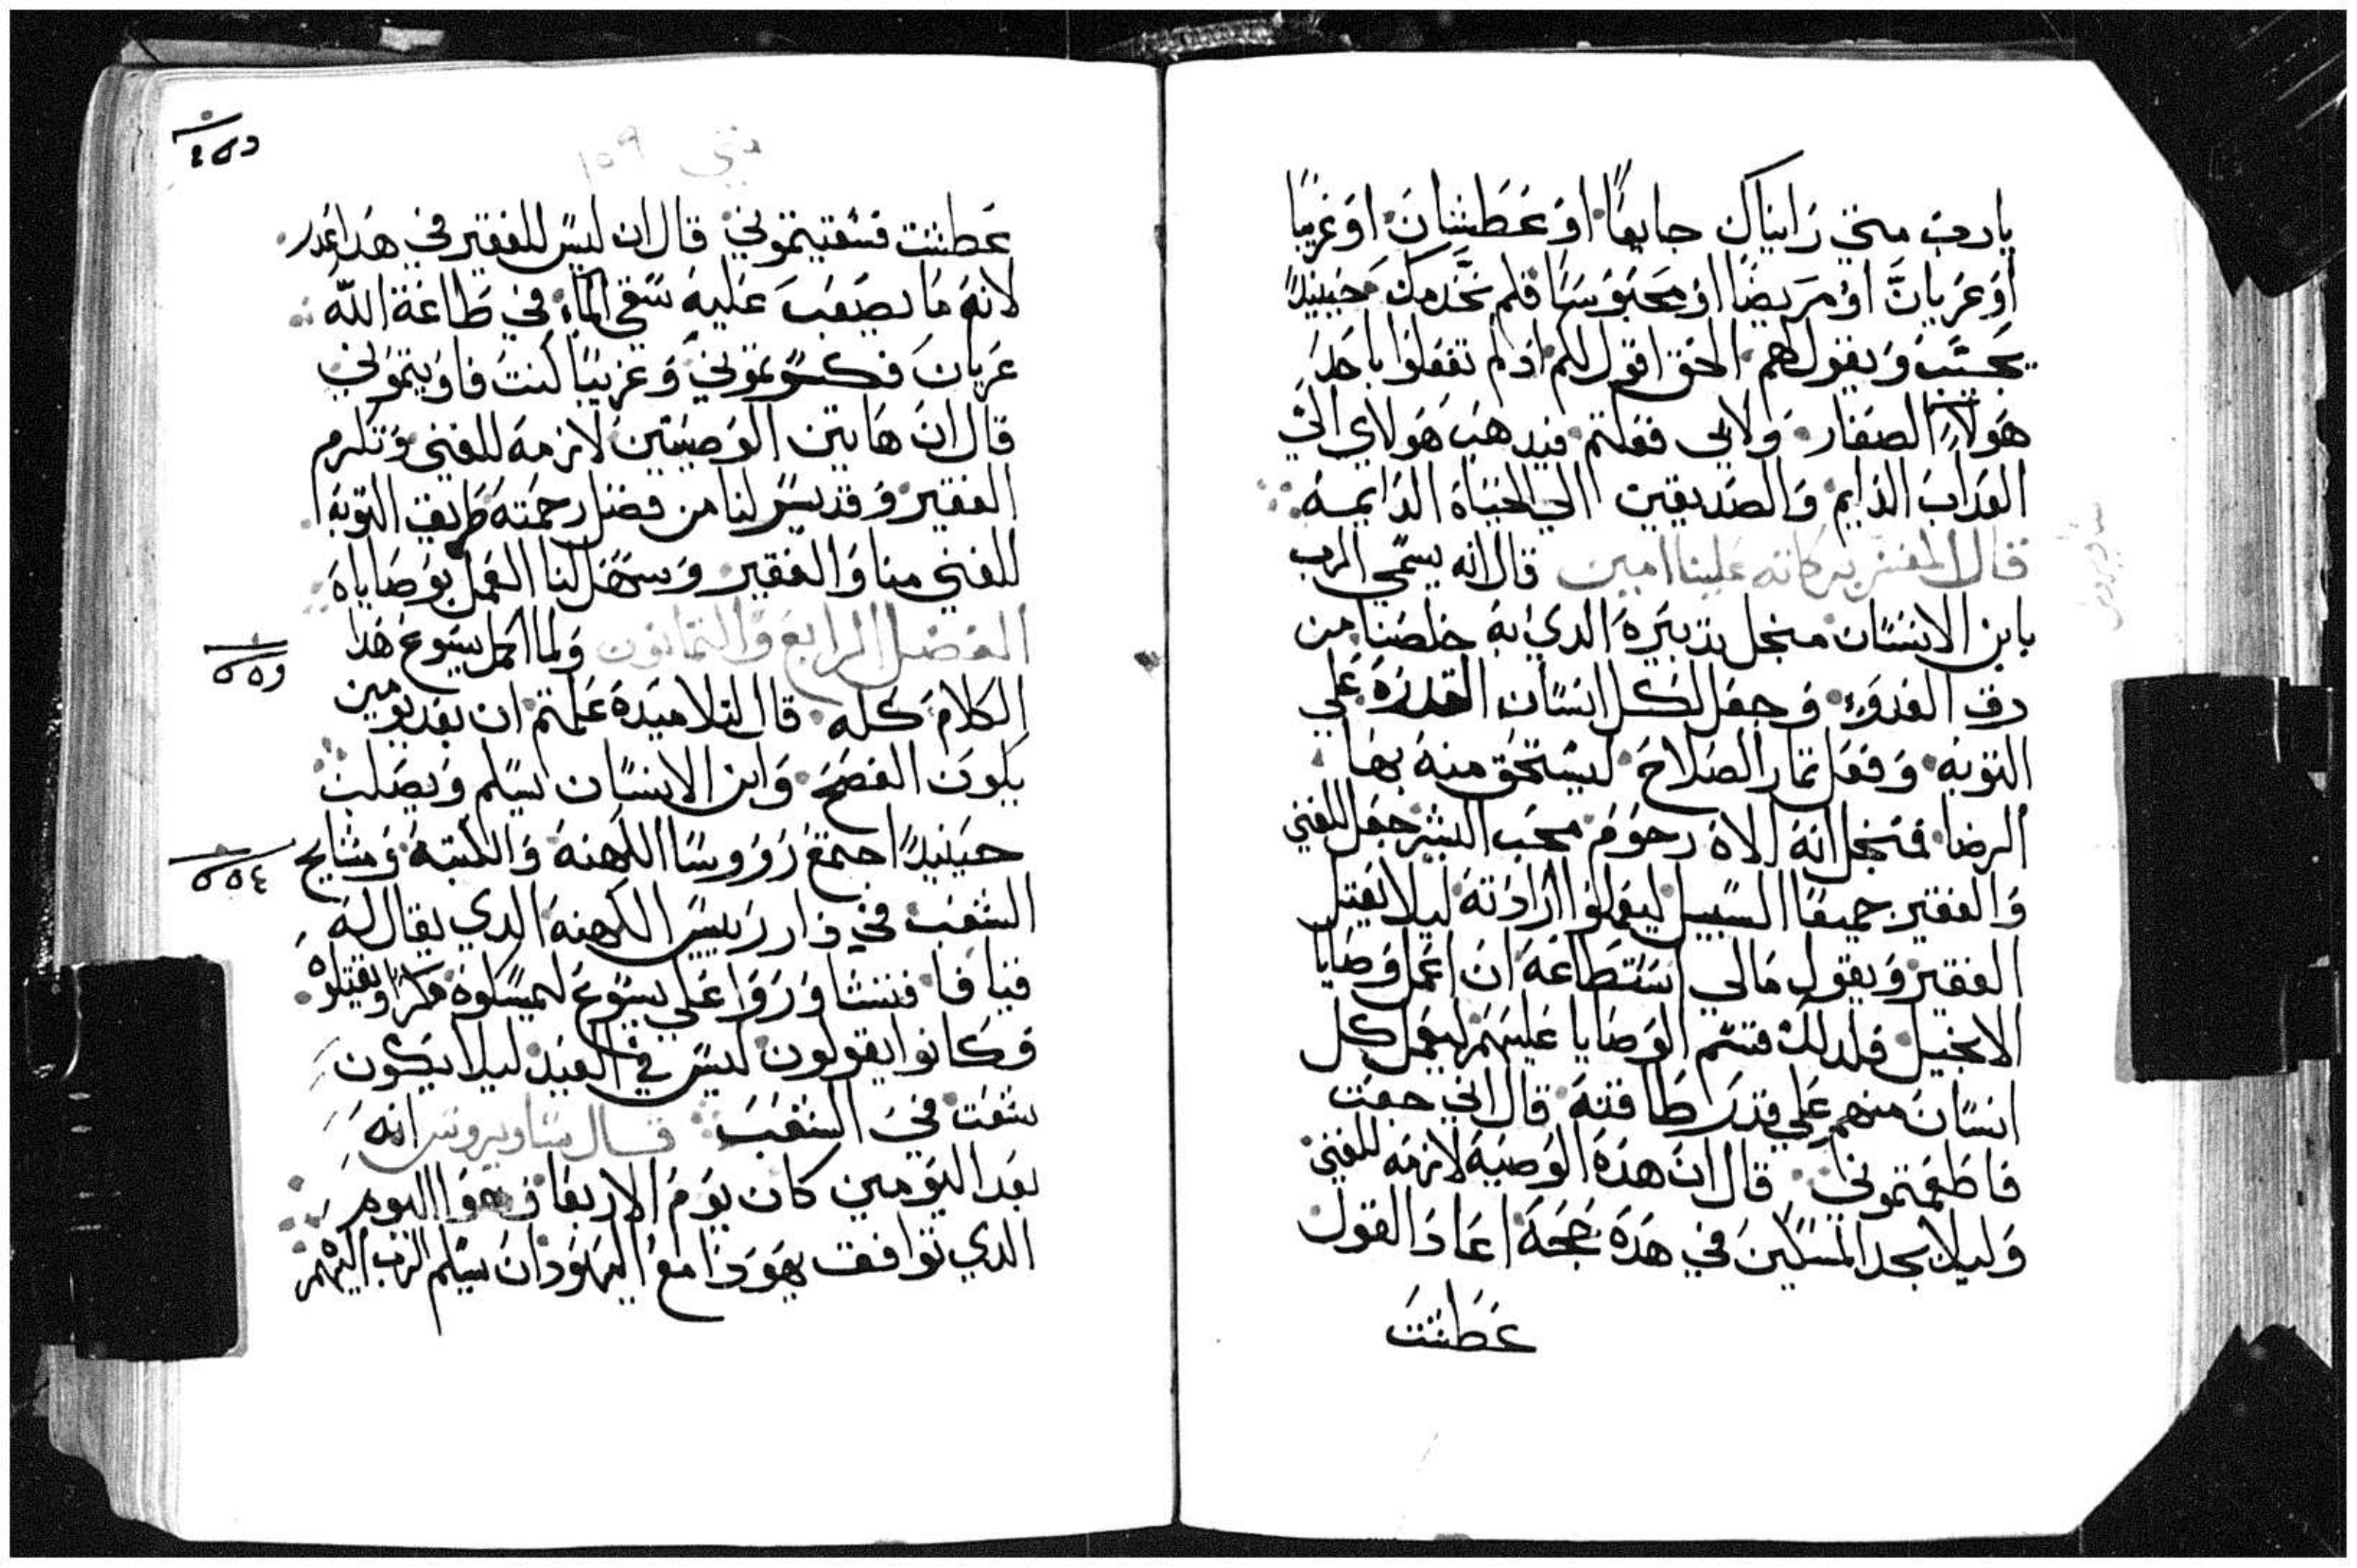 يارب متي رايناك جايعًا او عَطشانَ او غريبًا
او عَريانَ او مَريضًا او محبوسًا فلم نخدمك حينيدً
يجيب ويقول لهم الحق اقول لكم اد لم تفعلوا باحد
هولاء الصغار ولا بي فعلتم فيدهب هولاي الي
العداب الدايم والصديقين الي الحياة الدايمه
قال المفسر بركاته علينا امين قال انه يسمي الرب
بابن الانسان منجل تدبيره الدي به خلصنا من
رق العدو وجعل لكل انسان القدرة علي
التوبه وفعل ثمار الصلاح ليستحق منه بها
الرضا فمنجل انه الاه رحوم محب البشر جعل للغني
والفقير جميعًا السبيل ليعملوا ارادته ليلا يعتل
الفقير ويقول مالي استطاعه ان اعمل وصايا
الانجيل فلدلك قسم الوصايا عليهم ليعمل كل
انسان منهم علي قدر طاقته قال اني جعت
فاطعمتموني قال ان هده الوصية لازمه للغني
وليلا يجد المسكين في هده حجة اعاد القول
عَطشت
متي ١٥٩
عَطشت فسقيتموني قال ان ليس للفقير في هدا عدر
لانه ما يصعب عليه سقي الماء في طاعة الله
عريان فكسوتموني وغريبًا كنت فاويتموني
قال ان هاتين الوصيتين لازمة للغني وتلزم
الفقير وقد يسر لنا من فضل رحمته طريق التوبة
للغني منا والفقير وسهل لنا العمل بوصاياه
الفصل الرابع والثمانون ولما اكمل يسوع هدا
الكلام كله قال لتلاميده علمتم ان بعد يومين
يكون الفصح وابن الانسان يسلم ويصلب
حينيدً اجتمع روروسا الكهنة والكتبة ومشايخ
الشعب في دار رييس الكهنة الدي يقال له
قيافا فتشاوروا علي يسوع ليمسكوه مكرًا ويقتلوه
وكانوا يقولون ليس في العيد ليلا يكون
شغت في الشعب قال ساويروس انه
بعد اليومين كان يوم الاربعا وهو اليوم
الدي توافقت يهودا مع اليهود ان يسلم الرب اليهم